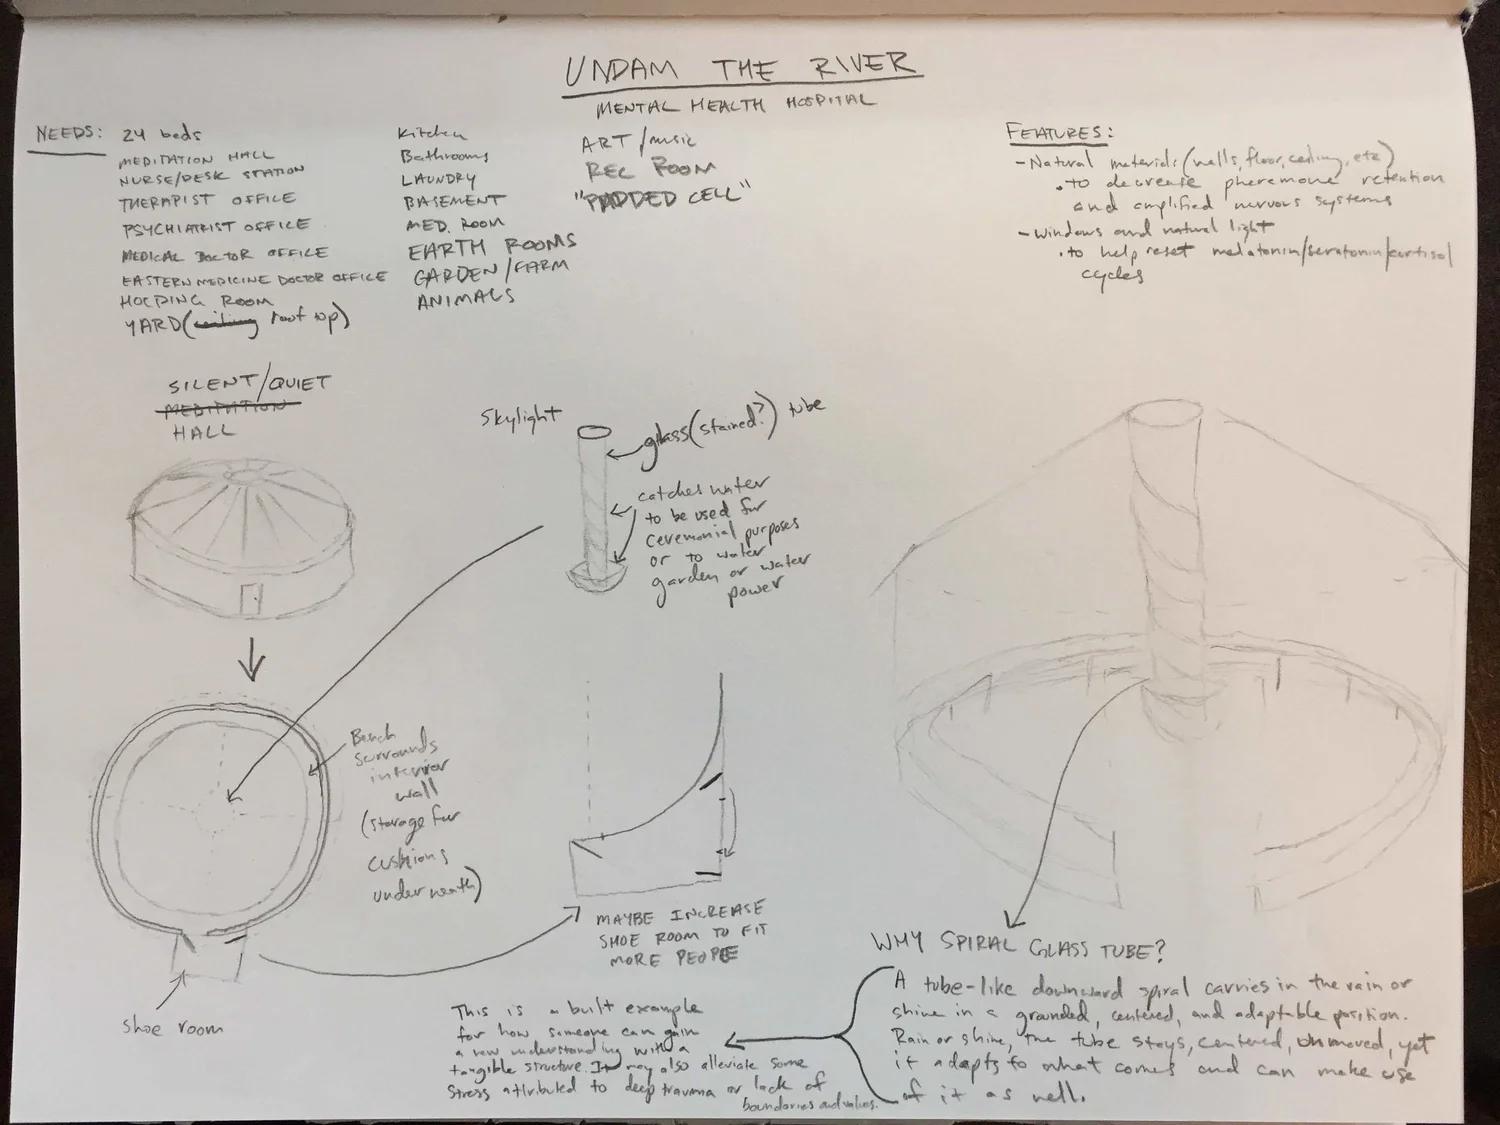 UNDAM THE RIVER
MENTAL HEALTH HOSPITAL
NEEDS:
24 beds
MEDITATION HALL
NURSE/DESK STATION
THERAPIST OFFICE
PSYCHIATRIST OFFICE
MEDICAL DOCTOR OFFICE
EASTERN MEDICINE DOCTOR OFFICE
HOLDING ROOM
YARD (ceiling roof top)
Kitchen
Bathrooms
LAUNDRY
BASEMENT
MED. ROOM
EARTH ROOMS
GARDEN/FARM
ANIMALS
ART/music
REC ROOM
"PADDED CELL"
FEATURES:
- Natural materials (walls, floor, ceiling, etc)
. to decrease pheremone retention
and amplified nervous systems
- Windows and natural light
. to help reset melatonin/seratonin/cortisol
cycles
SILENT/QUIET
MEDITATION
HALL
Skylight
glass (stained?) tube
catches water
to be used for
ceremonial purposes
or to water
garden or water
power
Bench
surrounds
interior
wall
(storage for
cushions
underneath)
shoe room
MAYBE INCREASE
SHOE ROOM TO FIT
MORE PEOPLE
WHY SPIRAL GLASS TUBE?
A tube-like downward spiral carries in the rain or
shine in a grounded, centered, and adaptable position.
Rain or shine, the tube stays, centered, unmoved, yet
it adapts to what comes and can make use
of it as well.
This is a built example
for how someone can gain
a new understanding with a
tangible structure. It may also alleviate some
stress attributed to deep trauma or lack of
boundaries and values.